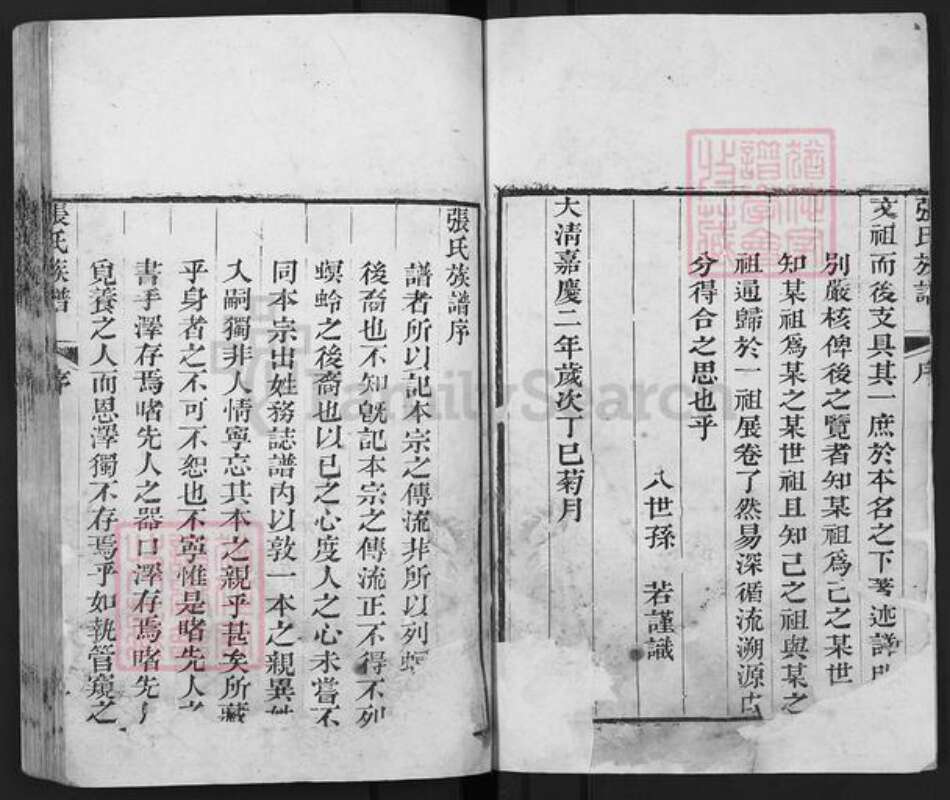 張氏族譜 序
支祖而後支具其一庶於本名之下著述詳
別嚴核俾後之覽者知某祖為己之某世
知某祖為某之某世祖且知己之祖與某之
祖通歸於一祖展卷了然易深循流溯源
分得合之思也乎
八世孫 若謹識
大清嘉慶二年歲次丁巳菊月
張氏族譜序
譜者所以記本宗之傳流非所以列螟
後裔也不知旣記本宗之傳流正不得不列
螟蛉之後裔也以已之心度人之心未嘗不
同本宗出姓務誌譜內以敦一本之親異姓
人嗣獨非人情寧忘其本之親乎甚矣所藏
乎身者之不可不恕也不寧惟是啫先人之
書手澤存焉啫先人之器口澤存焉啫先
覓養之人而恩澤獨不存焉乎如執管窺之
張氏族譜 序
FamilySearch